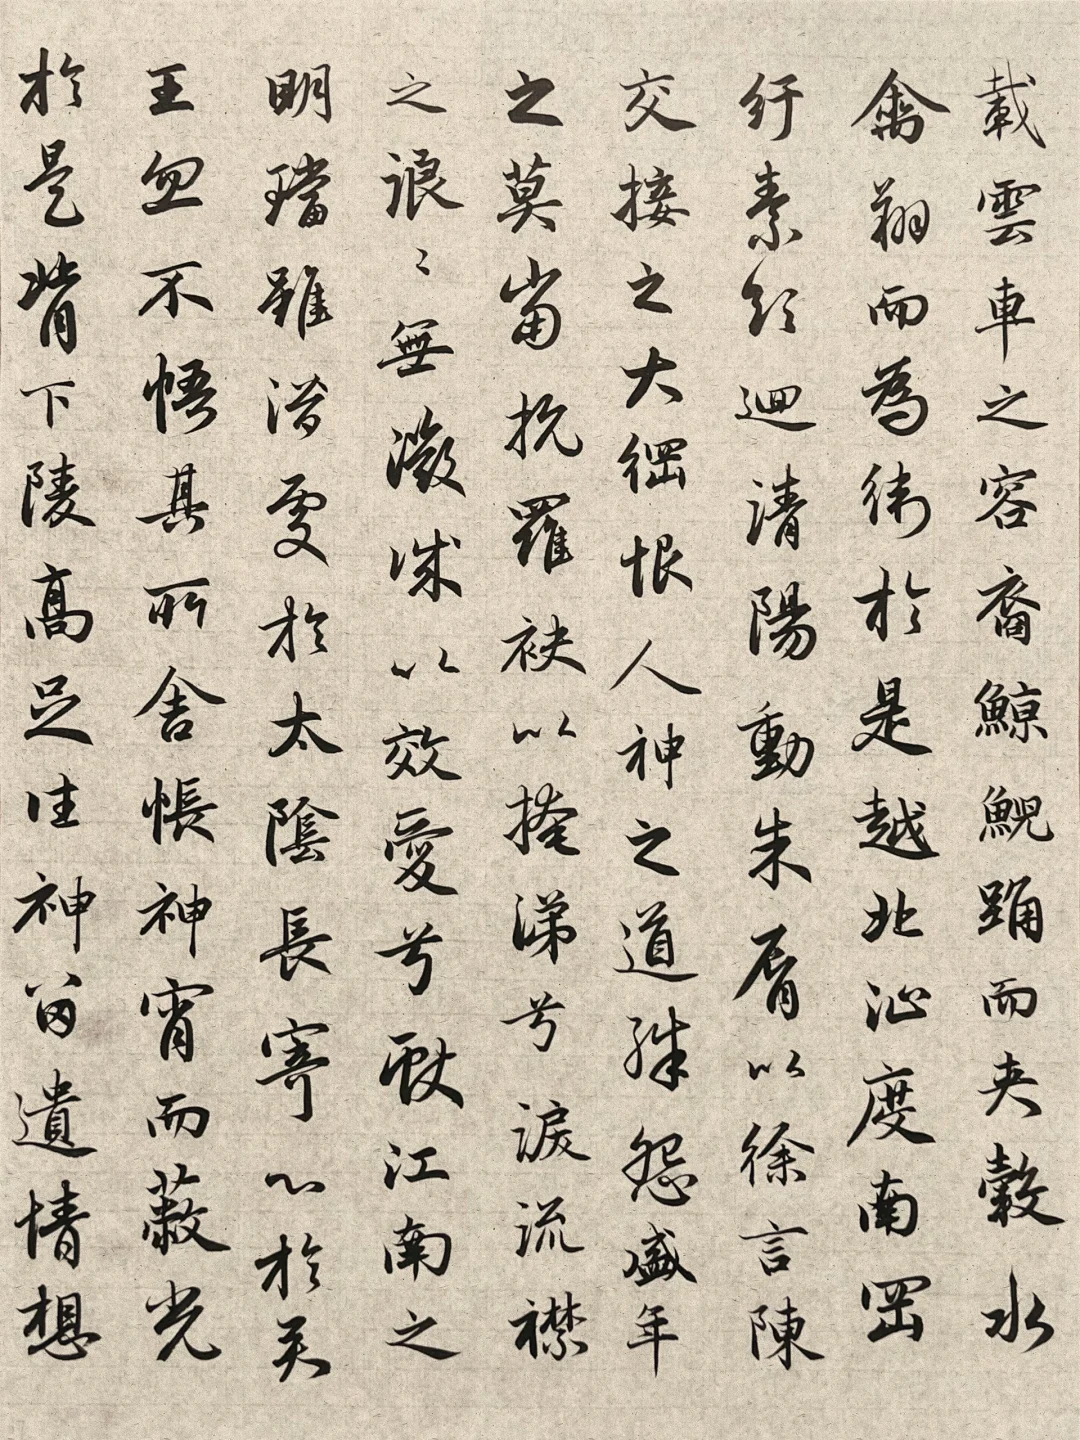 載雲車之容裔鯨鯢踊而夾轂水
禽翔而為衛於是越北沚度南岡
紆素領迴清陽動朱脣以徐言陳
交接之大綱恨人神之道殊怨盛年
之莫當抗羅袂以掩涕兮淚流襟
之浪〻無微誠以效愛兮獻江南之
明璫雖潛處於太陰長寄心於君
王忽不悟其所舍悵神宵而蔽光
於是背下陵高足往神留遺情想